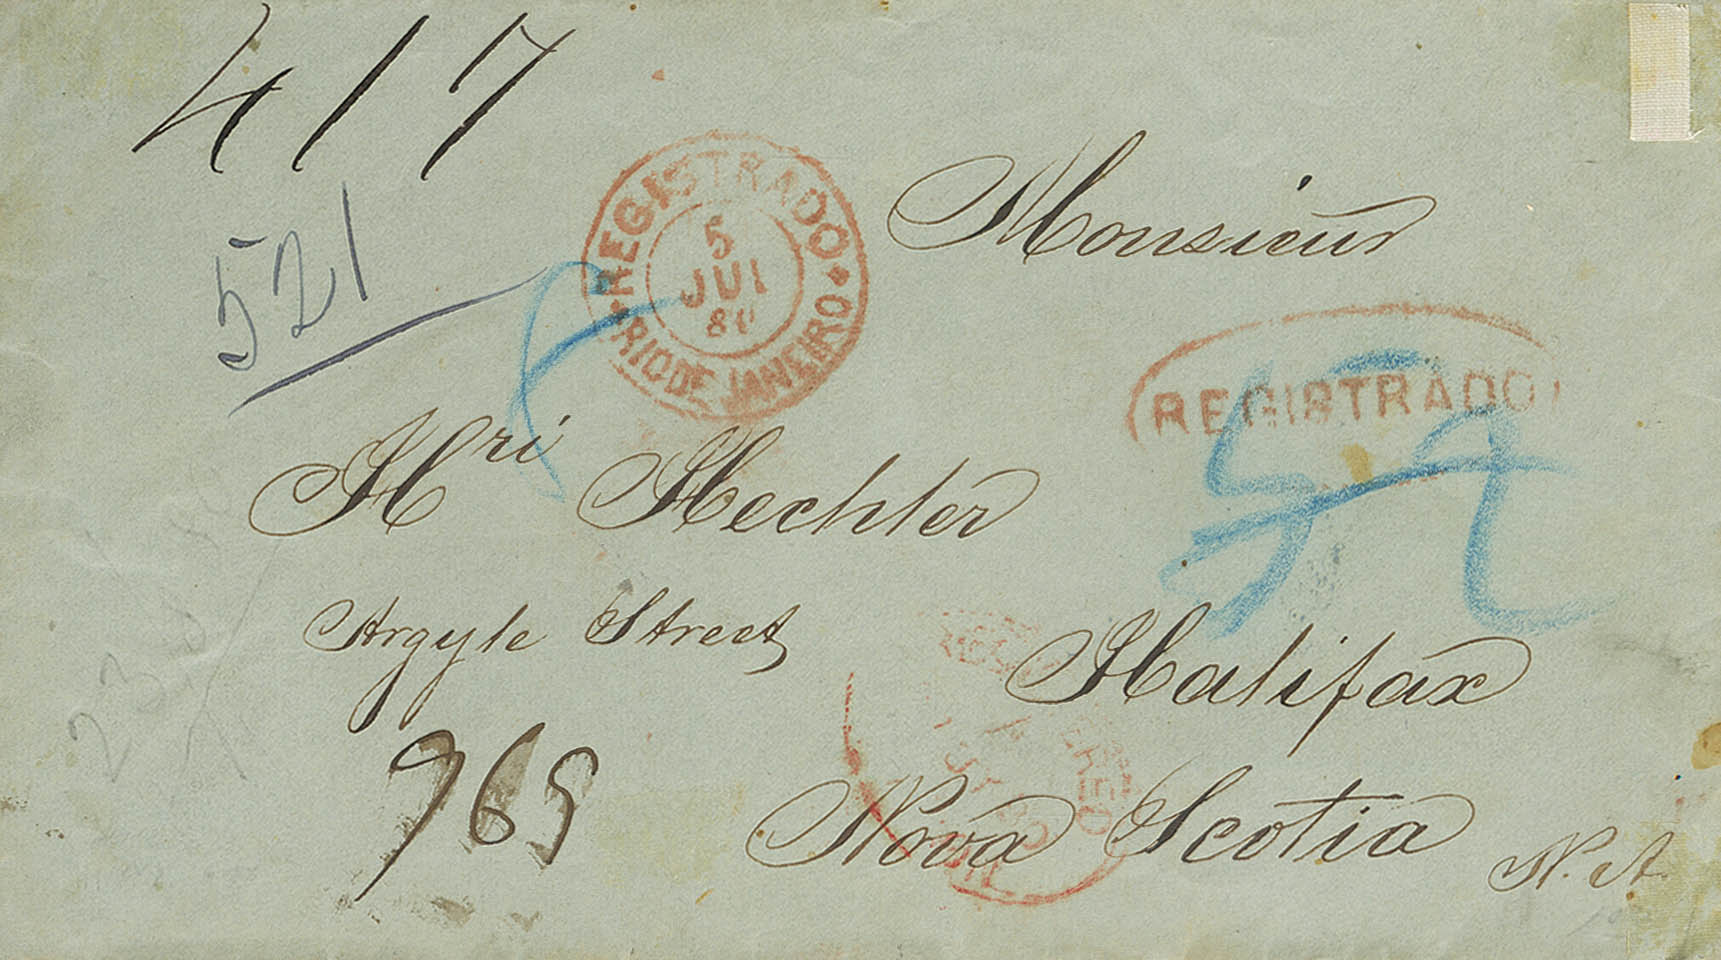 417
521
REGISTRADO
5
JUL
80
RIO DE JANEIRO
Monsieur
REGISTRADO
Hri Hechler
Argyle Street
Halifax
969
Nova Scotia
N. A.